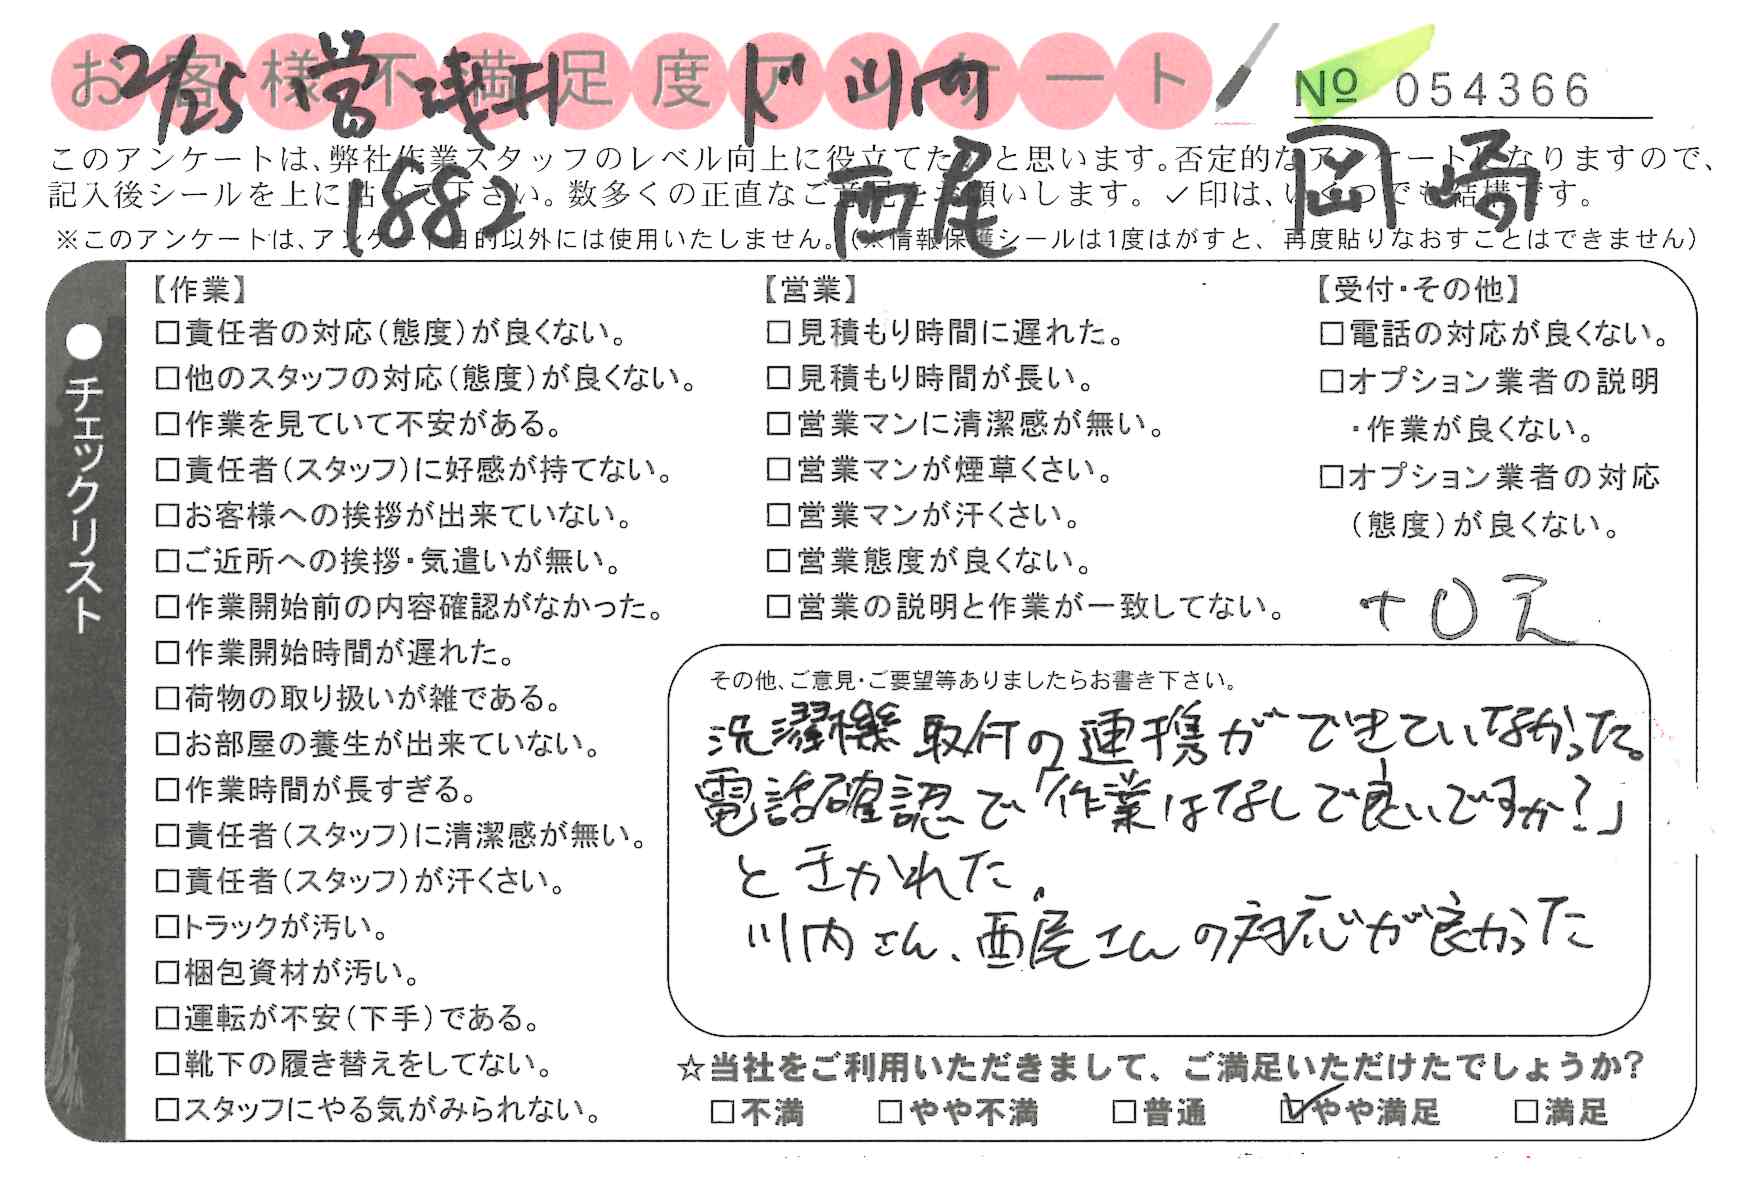 お客様不満足度アンケート
№ 054366
2/25 営 浅井 ド 川内
1882 西尾 岡崎
このアンケートは、弊社作業スタッフのレベル向上に役立てたいと思います。否定的なアンケートになりますので、
記入後シールを上に貼って下さい。数多くの正直なご意見をお願いします。✓印は、いくつでも結構です。
※このアンケートは、アンケート目的以外には使用いたしません。(※情報保護シールは1度はがすと、再度貼りなおすことはできません)
●チェックリスト
【作業】
□責任者の対応(態度)が良くない。
□他のスタッフの対応(態度)が良くない。
□作業を見ていて不安がある。
□責任者(スタッフ)に好感が持てない。
□お客様への挨拶が出来ていない。
□ご近所への挨拶・気遣いが無い。
□作業開始前の内容確認がなかった。
□作業開始時間が遅れた。
□荷物の取り扱いが雑である。
□お部屋の養生が出来ていない。
□作業時間が長すぎる。
□責任者(スタッフ)に清潔感が無い。
□責任者(スタッフ)が汗くさい。
□トラックが汚い。
□梱包資材が汚い。
□運転が不安(下手)である。
□靴下の履き替えをしてない。
□スタッフにやる気がみられない。
【営業】
□見積もり時間に遅れた。
□見積もり時間が長い。
□営業マンに清潔感が無い。
□営業マンが煙草くさい。
□営業マンが汗くさい。
□営業態度が良くない。
□営業の説明と作業が一致してない。
【受付・その他】
□電話の対応が良くない。
□オプション業者の説明
・作業が良くない。
□オプション業者の対応
(態度)が良くない。
その他、ご意見・ご要望等ありましたらお書き下さい。
洗濯機取付の連携ができていなかった。
電話確認で「作業はなしで良いですか?」
ときかれた。
川内さん、西尾さんの対応が良かった
☆当社をご利用いただきまして、ご満足いただけたでしょうか?
□不満 □やや不満 □普通 ☑やや満足 □満足